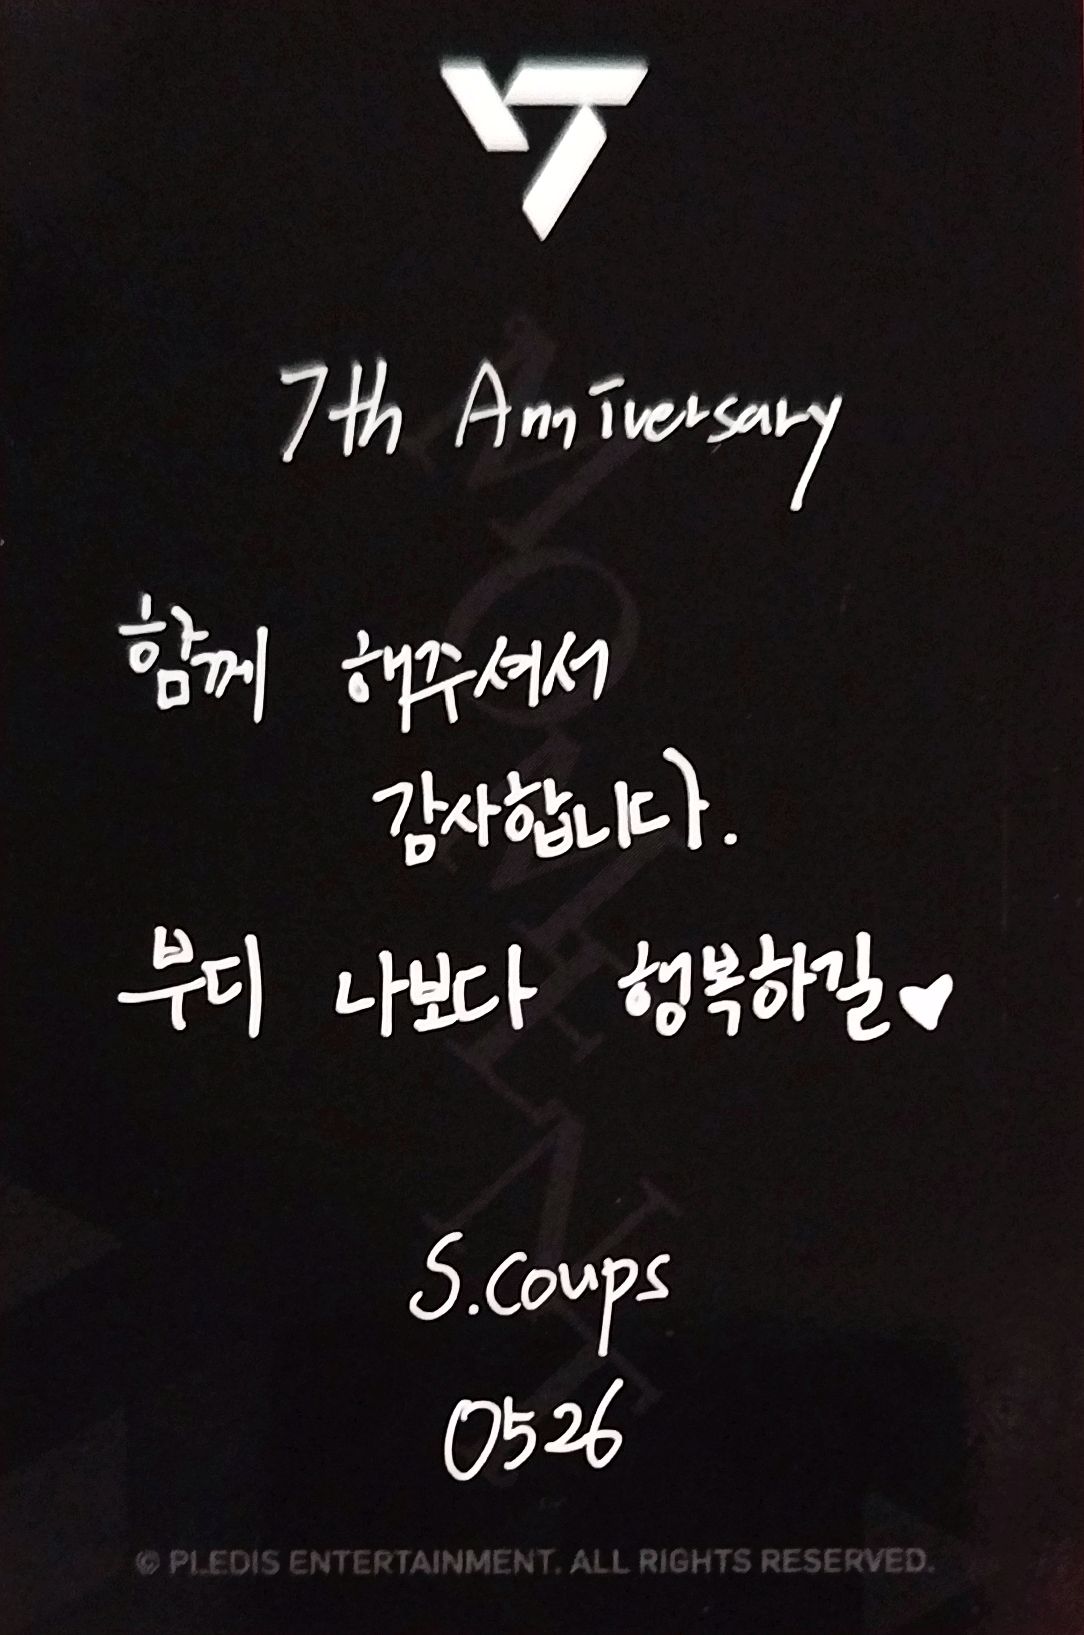 7th Anniversary
함께 해주셔서
감사합니다.
부디 나보다 행복하길♥
S.Coups
0526
© PLEDIS ENTERTAINMENT. ALL RIGHTS RESERVED.